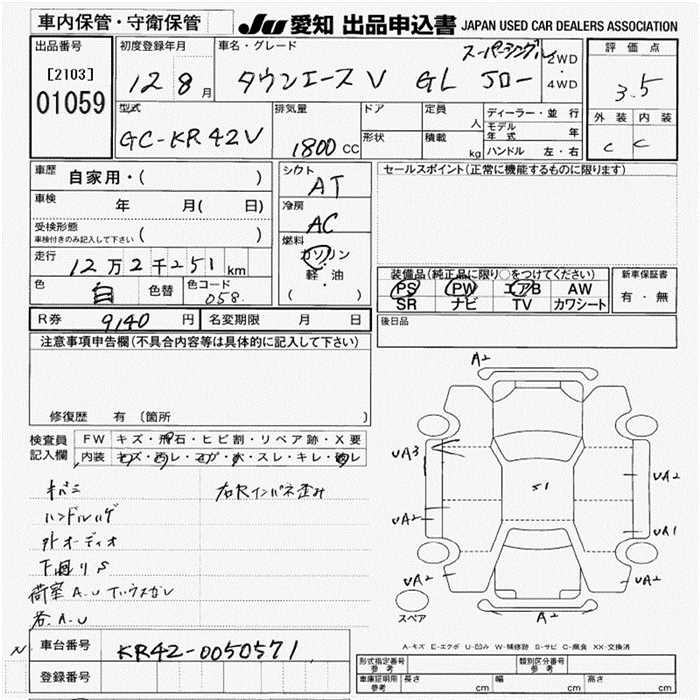 車内保管・守衛保管
JU 愛知 出品申込書 JAPAN USED CAR DEALERS ASSOCIATION
出品番号
[2103]
01059
初度登録年月
12 8 月
車名・グレード
スーパーシングル
タウンエース V GL 5ロー
2WD
・
4WD
評価点
3.5
外装 内装
C C
型式
GC-KR42V
排気量
1800 CC
ドア
形状
定員
人
積載
kg
ディーラー・並行
モデル年式 年
ハンドル 左・右
車歴 自家用・( )
車検 年 月( 日)
受検形態
車検付きのみ記入して下さい ( )
走行 12万2千251 km
色 白 色替 色コード 058
シフト
AT
冷房
AC
燃料
ガソリン
・
軽・油
( )
セールスポイント(正常に機能するものに限ります)
装備品(純正品に限り○をつけてください)
PS PW エアB AW
SR ナビ TV カワシート
新車保証書
有・無
R券 9140 円 名変期限 月 日
後日品
注意事項申告欄(不具合内容等は具体的に記入して下さい)
修復歴 有 〔箇所 〕
検査員記入欄
FW キズ・飛石・ヒビ割・リペア跡・X要
内装 キズ・汚レ・コゲ・穴・スレ・キレ・破レ
右Rインパネ歪み
ハンドルハゲ
外オーディオ
下廻りS
荷室A.U
各A.U
A2
UA3
UA2
UA2
S1
UA2
UA1
UA2
A2
スペア
A-キズ E-エクボ U-凹み W-補修跡 S-サビ C-腐食 XX-交換済
N
車台番号 KR42-0050571
登録番号
形式指定番号 参考
類別区分番号 参考
車庫証明用 参考 長さ cm 幅 cm 高さ cm